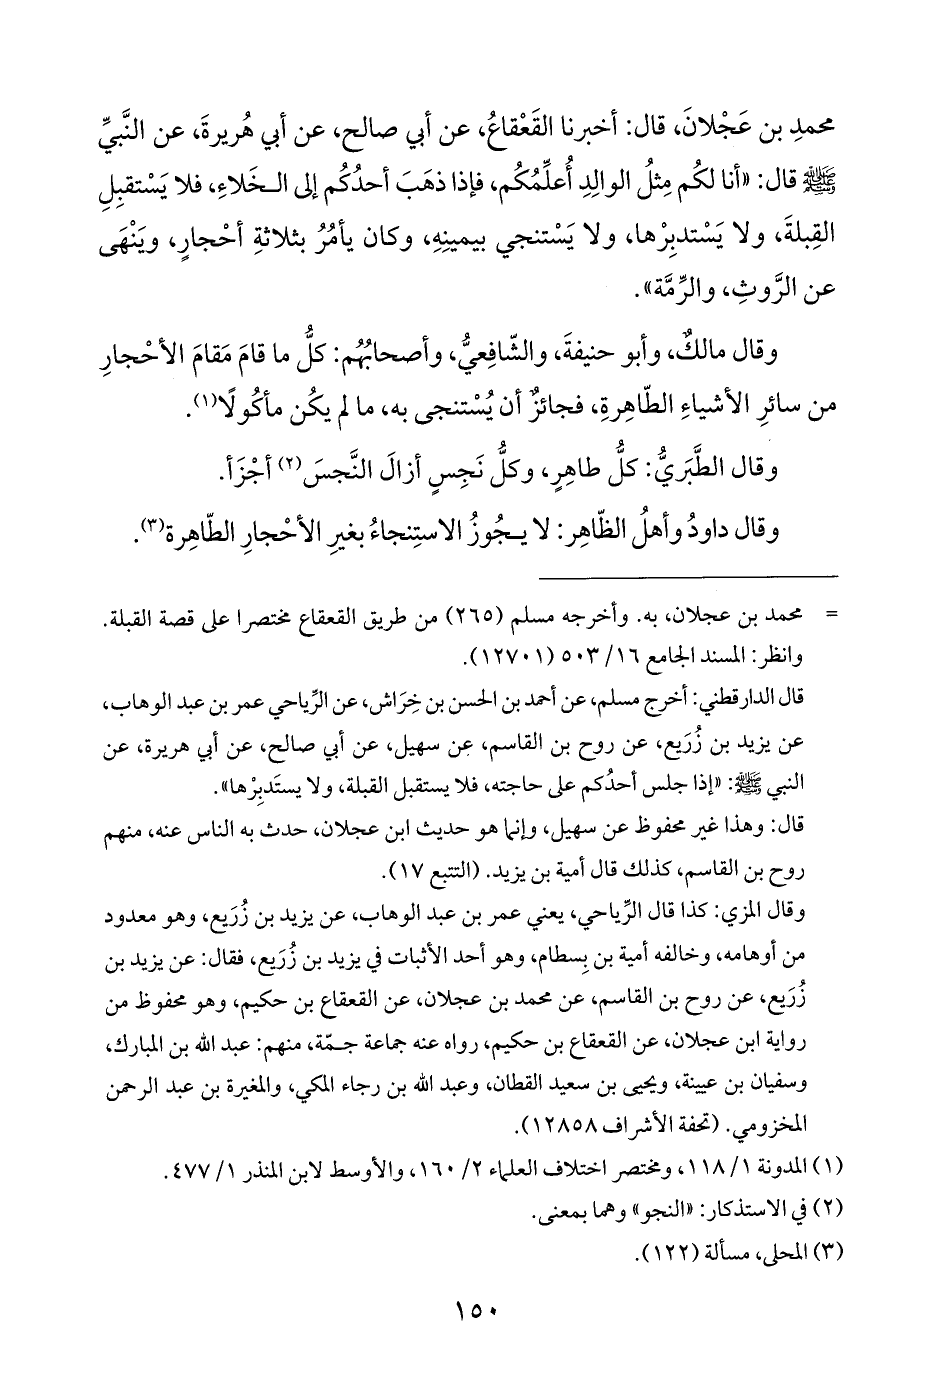 محمدِ بن عَجْلانَ، قال: أخبرنا القَعْقاعُ، عن أبي صالح، عن أبي هُريرةَ، عن النَّبيِّ
ﷺ قال: «أنا لكُم مِثلُ الوالِدِ أُعلِّمُكُم، فإذا ذهَبَ أحدُكُم إلى الـخَلاءِ، فلا يَسْتقبِلِ
القِبلةَ، ولا يَسْتدبِرْها، ولا يَسْتنجي بيمينِهِ، وكان يأمُرُ بثلاثةِ أحْجارٍ، ويَنْهَى
عن الرَّوثِ، والرِّمَّة».
وقال مالكٌ، وأبو حنيفةَ، والشّافِعيُّ، وأصحابُهُم: كلُّ ما قامَ مَقامَ الأحْجارِ
من سائرِ الأشياءِ الطّاهِرةِ، فجائزٌ أن يُسْتنجى به، ما لم يكُن مأكُولًا(١).
وقال الطَّبَريُّ: كلُّ طاهِرٍ، وكلُّ نَجِسٍ أزالَ النَّجسَ(٢) أجْزَأ.
وقال داودُ وأهلُ الظّاهِر: لا يـجُوزُ الاستِنجاءُ بغيرِ الأحْجارِ الطّاهِرة(٣).
= محمد بن عجلان، به. وأخرجه مسلم (٢٦٥) من طريق القعقاع مختصرا على قصة القبلة.
وانظر: المسند الجامع ١٦/ ٥٠٣ (١٢٧٠١).
قال الدارقطني: أخرج مسلم، عن أحمد بن الحسن بن خِرَاش، عن الرِّياحي عمر بن عبد الوهاب،
عن يزيد بن زُرَيع، عن روح بن القاسم، عن سهيل، عن أبي صالح، عن أبي هريرة، عن
النبي ﷺ: «إذا جلس أحدُكم على حاجته، فلا يستقبل القبلة، ولا يستَدبِرْها».
قال: وهذا غير محفوظ عن سهيل، وإنما هو حديث ابن عجلان، حدث به الناس عنه، منهم
روح بن القاسم، كذلك قال أمية بن يزيد. (التتبع ١٧).
وقال المزي: كذا قال الرِّياحي، يعني عمر بن عبد الوهاب، عن يزيد بن زُرَيع، وهو معدود
من أوهامه، وخالفه أمية بن بِسطام، وهو أحد الأثبات في يزيد بن زُرَيع، فقال: عن يزيد بن
زُرَيع، عن روح بن القاسم، عن محمد بن عجلان، عن القعقاع بن حكيم، وهو محفوظ من
رواية ابن عجلان، عن القعقاع بن حكيم، رواه عنه جماعة جـمّة، منهم: عبد الله بن المبارك،
وسفيان بن عيينة، ويحيى بن سعيد القطان، وعبد الله بن رجاء المكي، والمغيرة بن عبد الرحمن
المخزومي. (تحفة الأشراف ١٢٨٥٨).
(١) المدونة ١/ ١١٨، ومختصر اختلاف العلماء ٢/ ١٦٠، والأوسط لابن المنذر ١/ ٤٧٧.
(٢) في الاستذكار: «النجو» وهما بمعنى.
(٣) المحلى، مسألة (١٢٢).
١٥٠